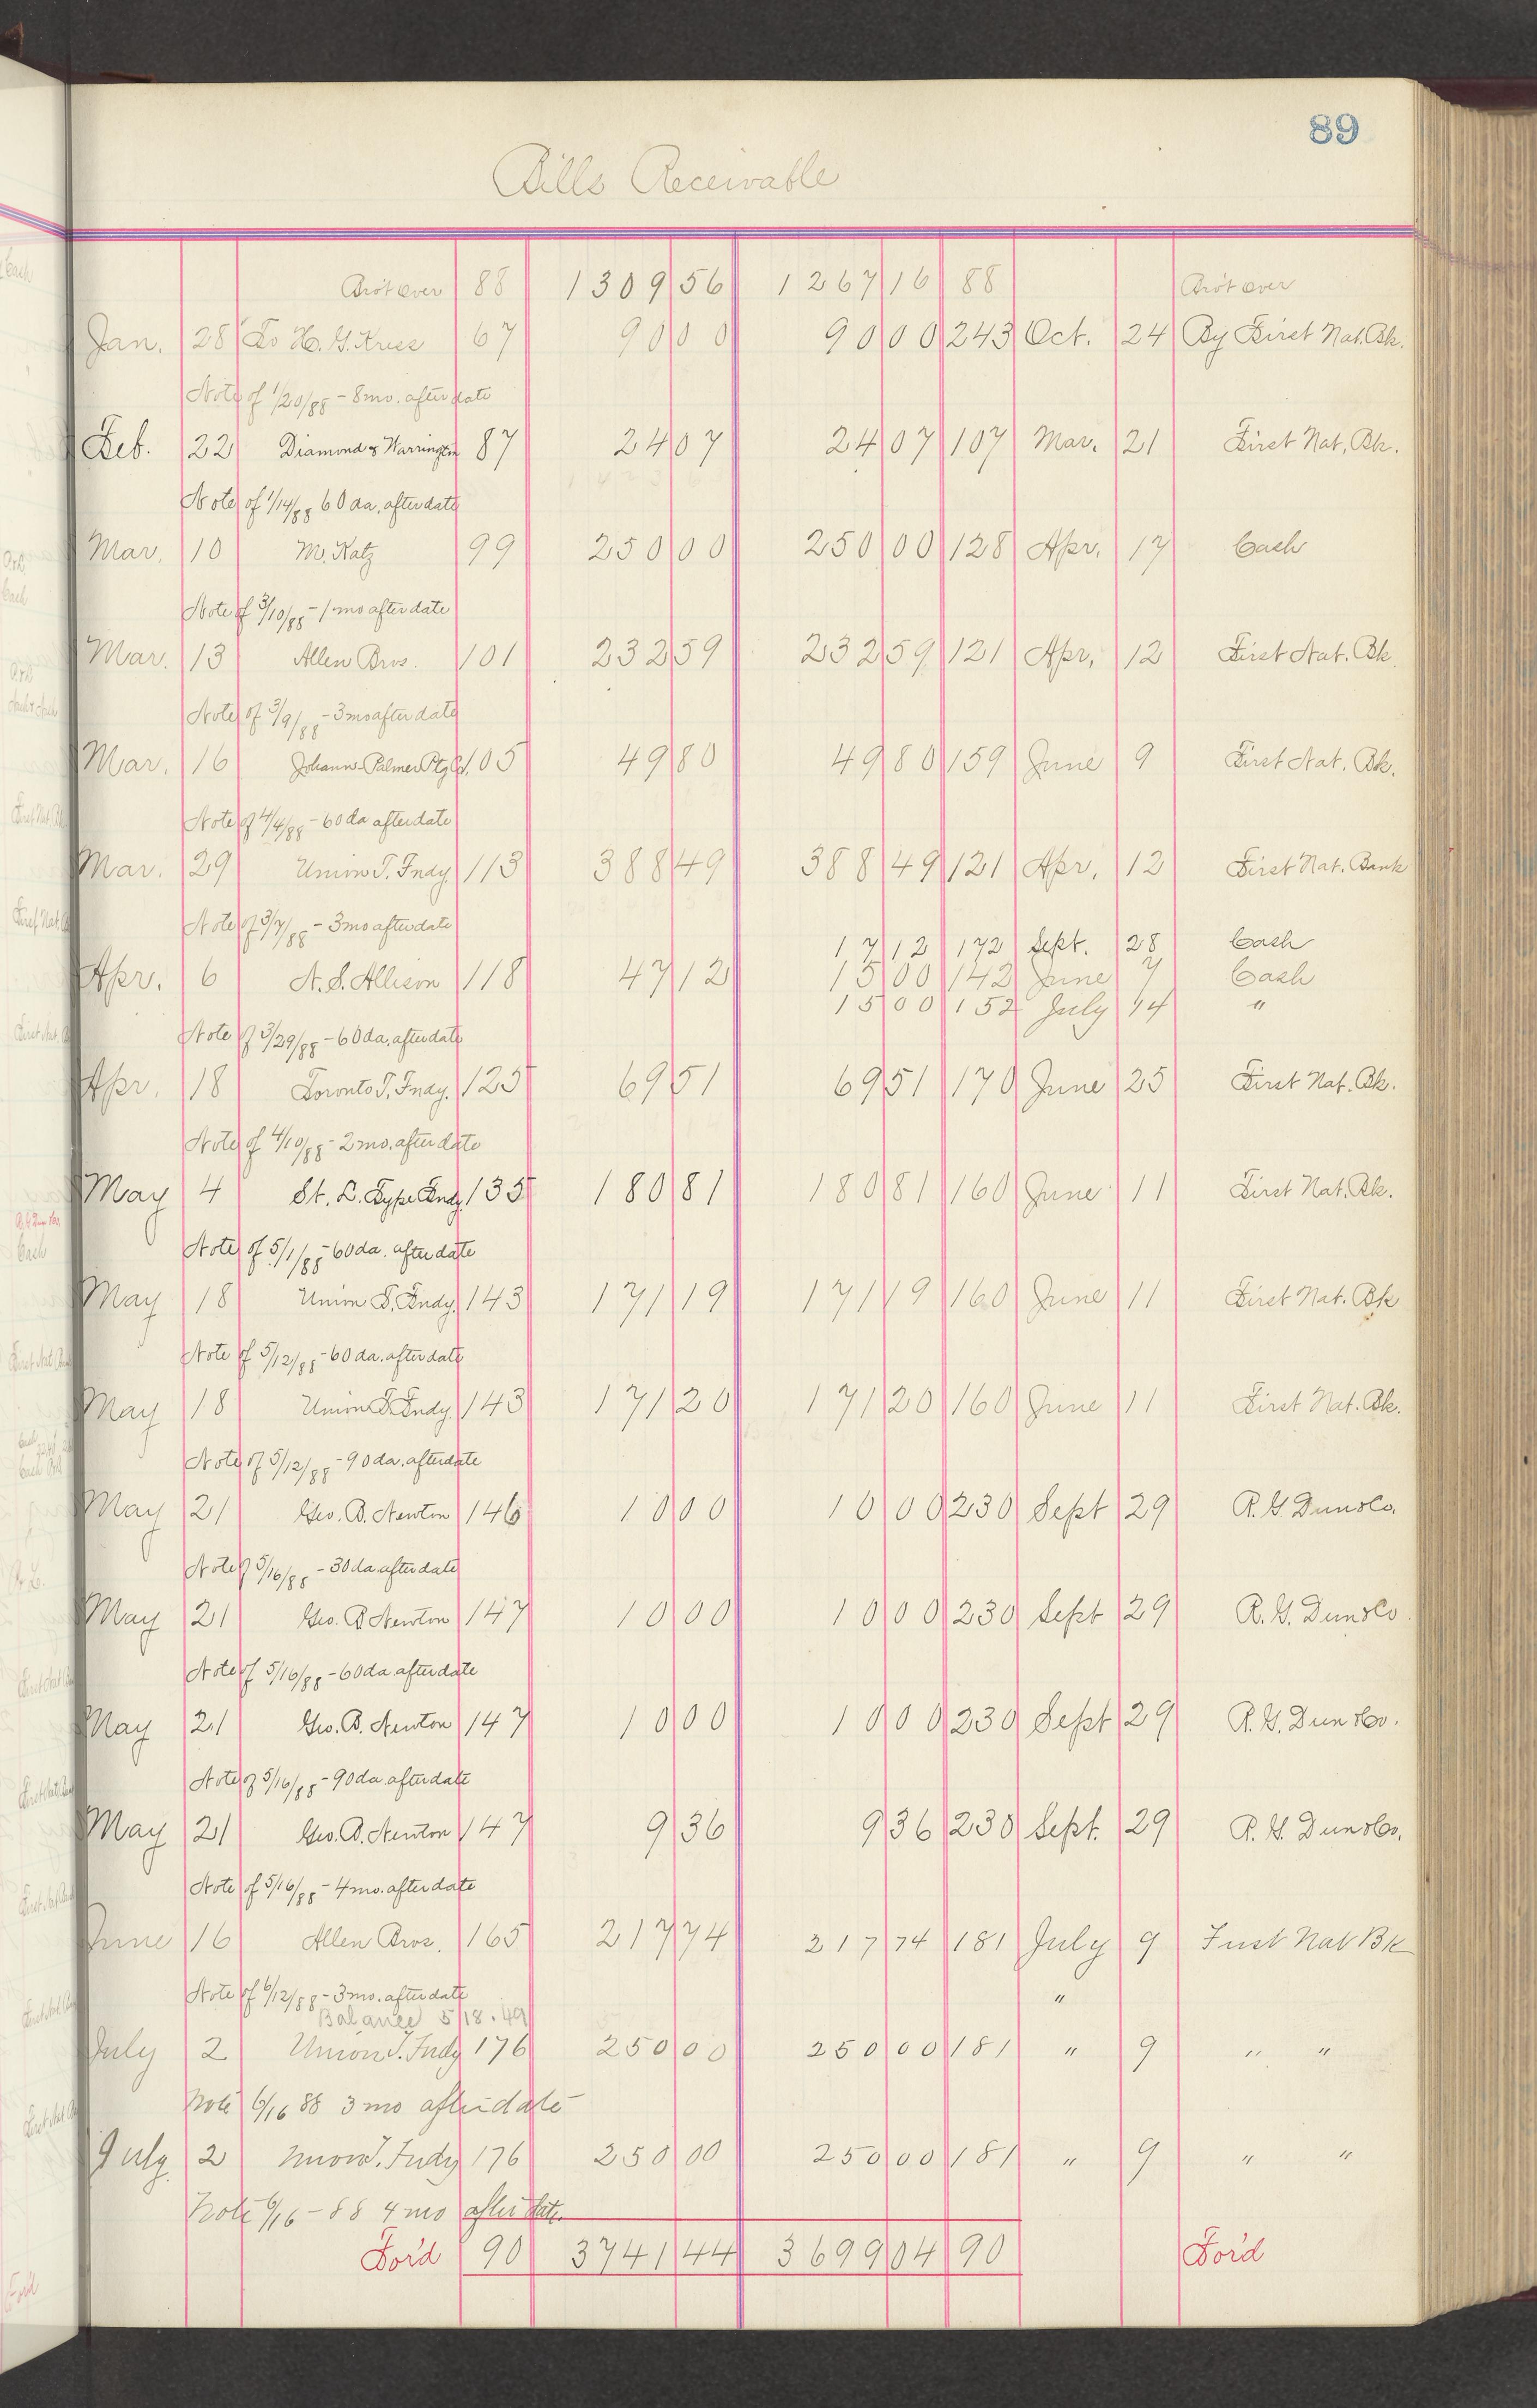 89
Bills Receivable
Bro't Over 88 1309 56 1267 16 88 Bro't over
Jan. 28 To H. G. Kries 67 90 00 90 00 243 Oct. 24 By First Nat. Bk.
Note of 1/20/88 - 8 mo. after date
Feb. 22 Diamond & Warrington 87 24 07 24 07 107 Mar. 21 First Nat, Bk.
Note of 1/14/88 60 da, after date
Mar. 10 M. Katz 99 250 00 250 00 128 Apr. 17 Cash
Note of 3/10/88 - 1 mo after date
Mar. 13 Allen Bros. 101 232 59 232 59 121 Apr, 12 First Nat. Bk
Note of 3/9/88 - 3 mo after date
Mar. 16 Johann-Palmer Ptg Co. 105 49 80 49 80 159 June 9 First Nat. Bk.
Note of 4/4/88 - 60 da after date
Mar. 29 Union T. Fndy. 113 388 49 388 49 121 Apr, 12 First Nat. Bank
Note of 3/7/88 - 3 mo after date
17 12 172 Sept. 28 Cash
Apr. 6 A. S. Allison 118 47 12 15 00 142 June 7 Cash
15 00 152 July 14 "
Note of 3/29/88 - 60 da, after date
Apr. 18 Toronto T. Fndy. 125 69 51 69 51 170 June 25 First Nat. Bk.
Note of 4/10/88 - 2 mo. after date
May 4 St. L. Type Fndy. 135 180 81 180 81 160 June 11 First Nat. Bk.
Note of 5/1/88 - 60 da. after date
May 18 Union T. Fndy. 143 171 19 171 19 160 June 11 First Nat. Bk
Note of 5/12/88 - 60 da. after date
May 18 Union T. Fndy. 143 171 20 171 20 160 June 11 First Nat. Bk.
Note of 5/12/88 - 90 da. after date
May 21 Geo. B. Newton 146 10 00 10 00 230 Sept 29 R. G. Dun & Co.
Note of 5/16/88 - 30 da after date
May 21 Geo. B Newton 147 10 00 10 00 230 Sept 29 R. G. Dun & Co
Note of 5/16/88 - 60 da after date
May 21 Geo. B. Newton 147 10 00 10 00 230 Sept 29 R. G. Dun & Co.
Note of 5/16/88 - 90 da after date
May 21 Geo. B. Newton 147 9 36 9 36 230 Sept. 29 R. G. Dun & Co.
Note of 5/16/88 - 4 mo. after date
June 16 Allen Bros. 165 217 74 217 74 181 July 9 First Nat Bk
Note of 6/12/88 - 3 mo. after date "
Balance 518.49
July 2 Union T. Fndy 176 250 00 250 00 181 " 9 " "
Note 6/16 88 3 mo after date
July 2 Union T. Fndy 176 250 00 250 00 181 " 9 " "
Note 6/16 - 88 4 mo after date
For'd 90 3741 44 3699 04 90 For'd